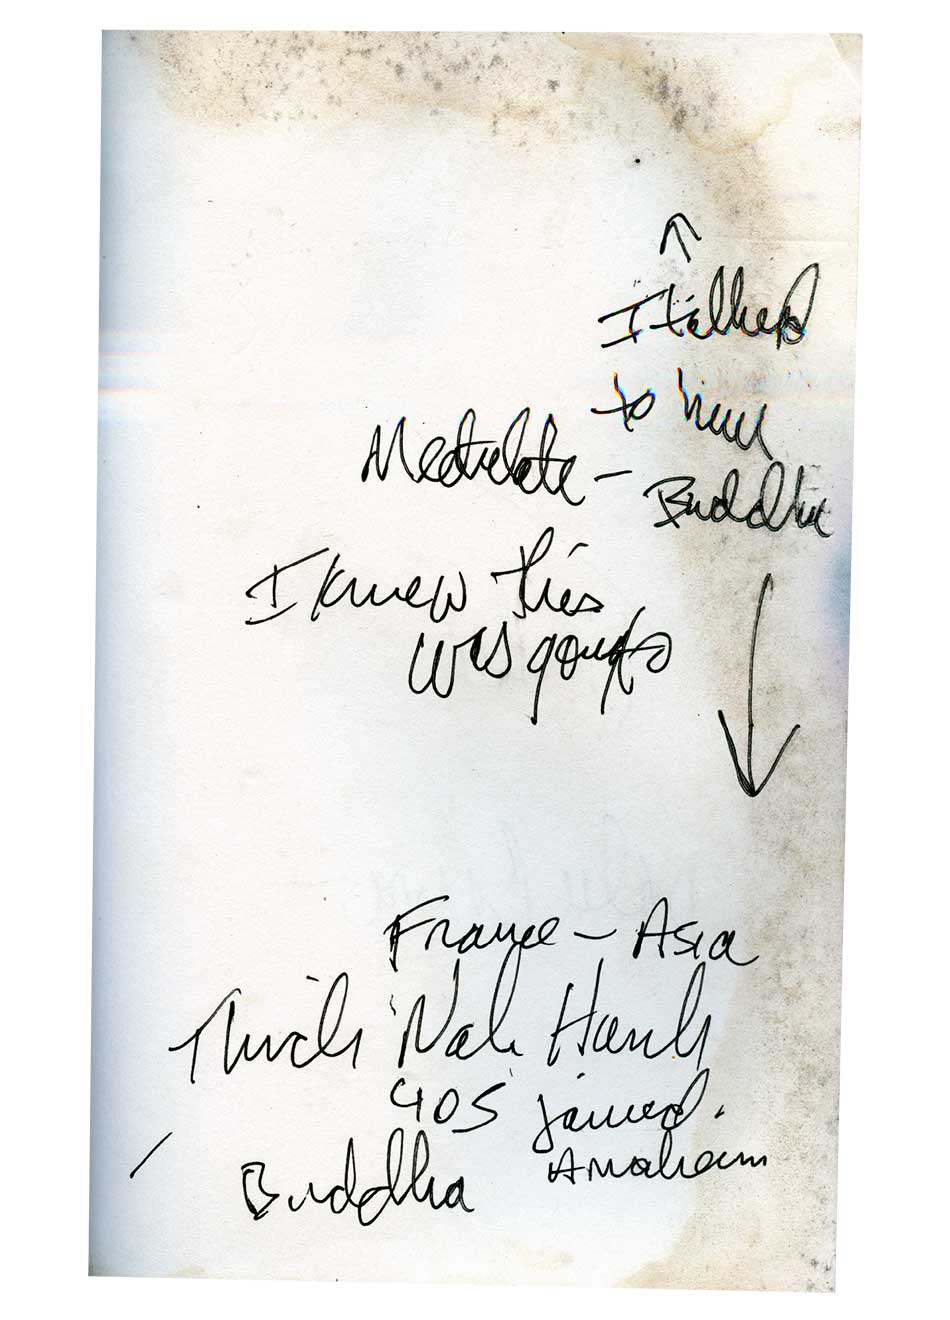 I talked
to him
Meditate - Buddha
I knew this
was going to
France - Asia
Thich Nah Hanh
405 joined.
Buddha Anaheim